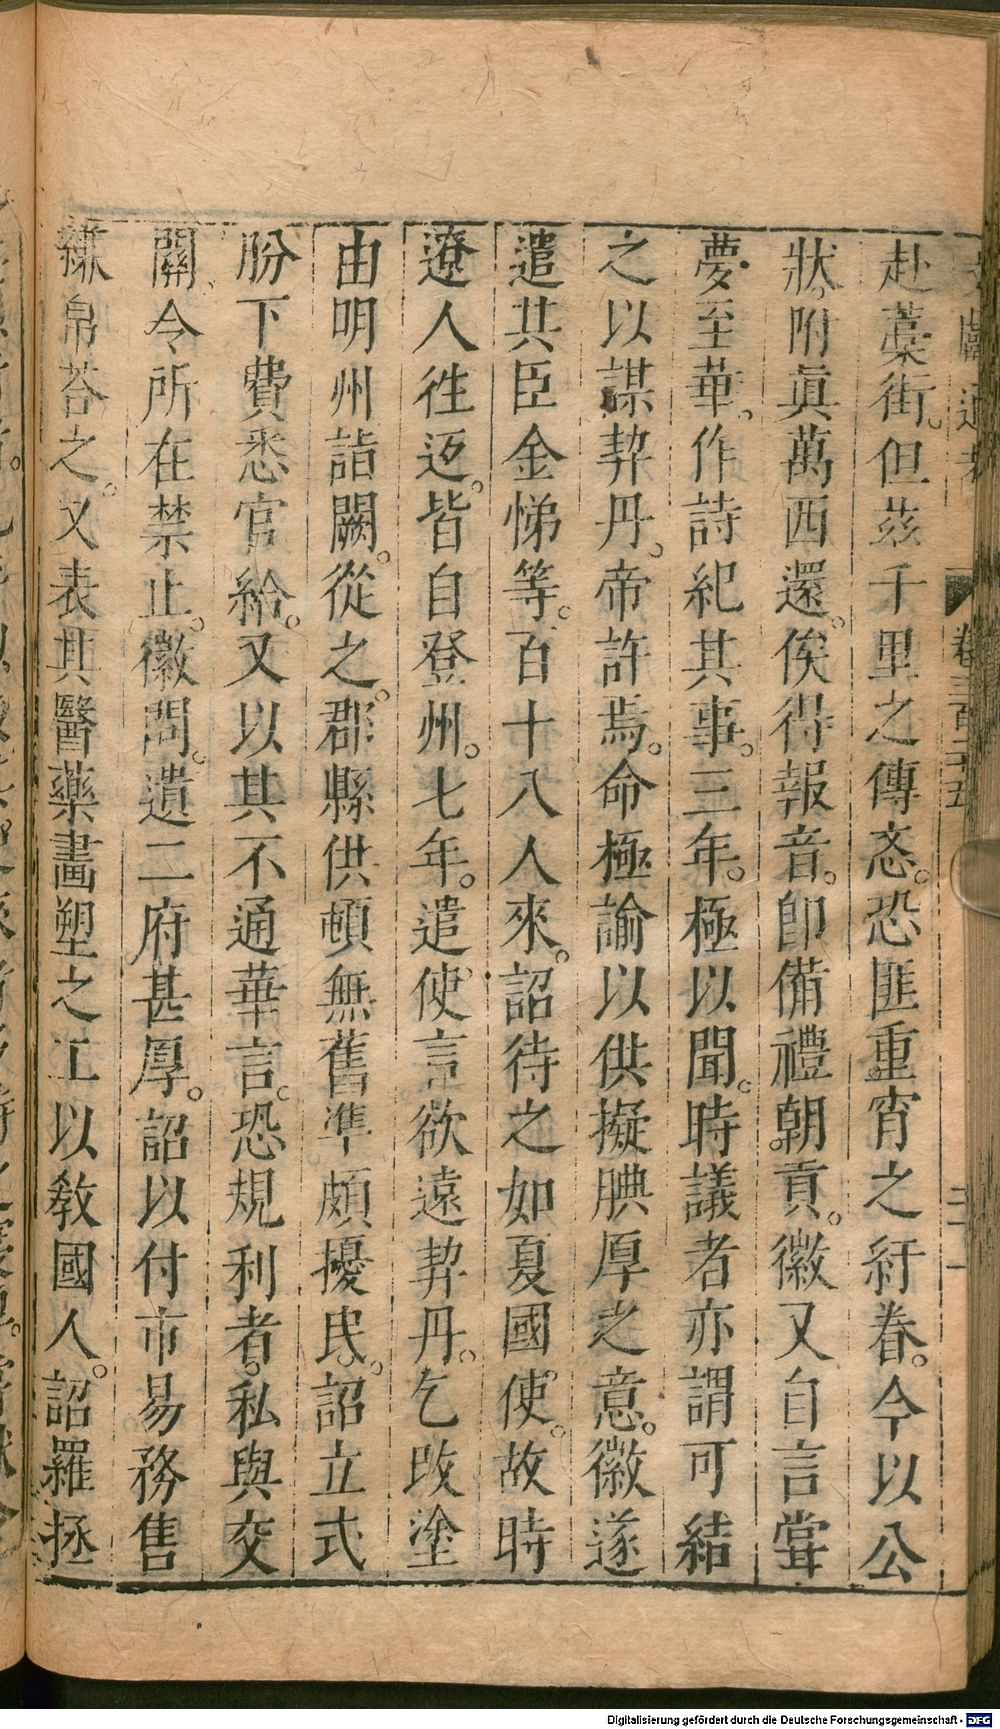 文獻通考 卷三百二十五
赴藁街。但茲千里之傳忞。恐匪重宵之紆眷。今以公
狀附眞萬西還。俟得報音。卽備禮朝貢。徽又自言嘗
夢至華。作詩紀其事。三年。極以聞。時議者亦謂可結
之以謀契丹。帝許焉。命極諭以供擬腆厚之意。徽遂
遣其臣金悌等。百十八人來。詔待之如夏國使。故時
遼人徃返。皆自登州。七年。遣使言欲遠契丹。乞改塗
由明州詣闕。從之。郡縣供頓無舊準頗擾民。詔立式
肦下費悉官給。又以其不通華言。恐規利者。私與交
關。令所在禁止。徽問。遺二府甚厚。詔以付市易務售
縑帛荅之。又表其醫藥畵塑之工以敎國人。詔羅拯
Digitalisierung gefördert durch die Deutsche Forschungsgemeinschaft - DFG